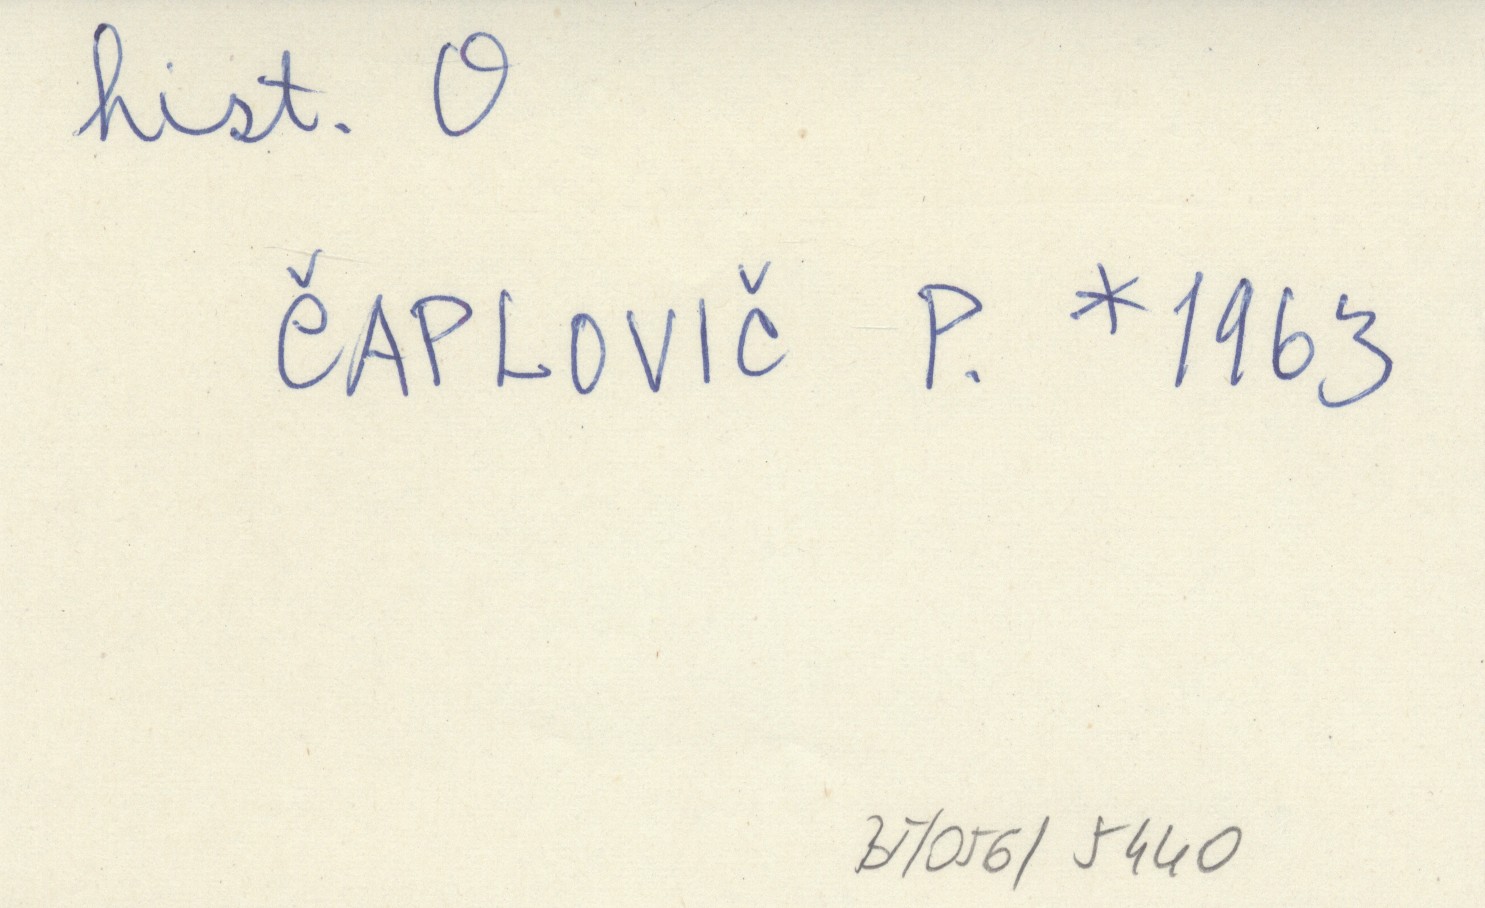 hist. O
ČAPLOVIČ P. *1963
35/056/ 5440